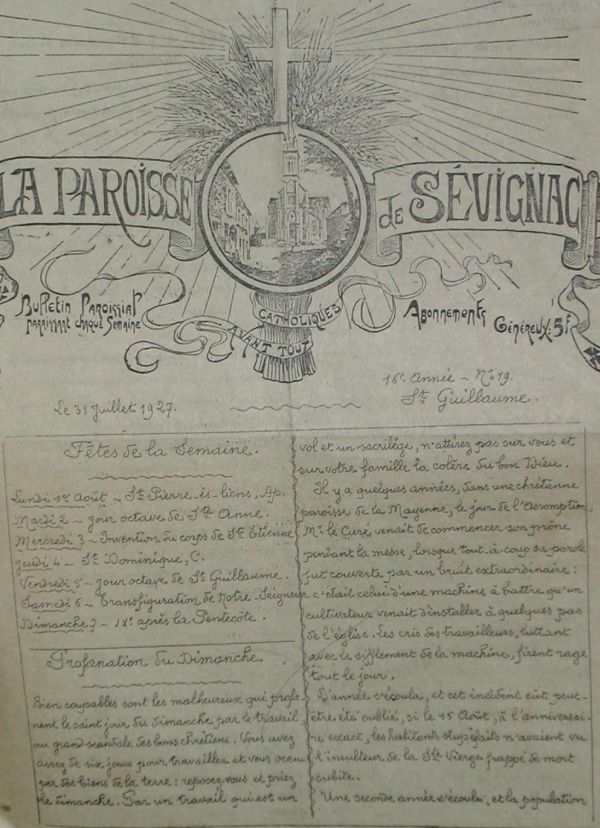 LA PAROISSE de SÉVIGNAC
Bulletin Paroissial
paraissant chaque Semaine
CATHOLIQUES
AVANT TOUT
Abonnements
Généreux: 5f
Le 31 Juillet 1927.
16e Année - No 19.
St Guillaume.
Fêtes de la Semaine.
Lundi 1er Août - St Pierre-ès-liens, Ap.
Mardi 2 - Jour octave de Ste Anne.
Mercredi 3 - Invention du corps de St Etienne
Jeudi 4 - St Dominique, C.
Vendredi 5 - Jour octave de St Guillaume.
Samedi 6 - Transfiguration de Notre-Seigneur
Dimanche 7 - IXe après la Pentecôte.
Profanation du Dimanche.
Bien coupables sont les malheureux qui profa-
nent le saint jour du dimanche par le travail,
au grand scandale des bons chrétiens. Vous avez
assez de six jours pour travailler et vous occu
per des biens de la terre: reposez-vous et priez
le dimanche. Par un travail qui est un
vol et un sacrilège, n'attirez pas sur vous et
sur votre famille la colère du bon Dieu.
Il y a quelques années, dans une chrétienne
paroisse de la Mayenne, le jour de l'Assomption,
Mr. le Curé venait de commencer son prône
pendant la messe, lorsque tout-à-coup sa parole
fut couverte par un bruit extraordinaire:
c'était celui d'une machine à battre qu'un
cultivateur venait d'installer à quelques pas
de l'église. Les cris des travailleurs, luttant
avec le sifflement de la machine, firent rage
tout le jour.
L'année s'écoula, et cet incident eût peut-
être été oublié, si le 15 Août, à l'anniversai-
re exact, les habitants stupéfaits n'avaient vu
l'insulteur de la Ste Vierge frappé de mort
subite.
Une seconde année s'écoula, et la population